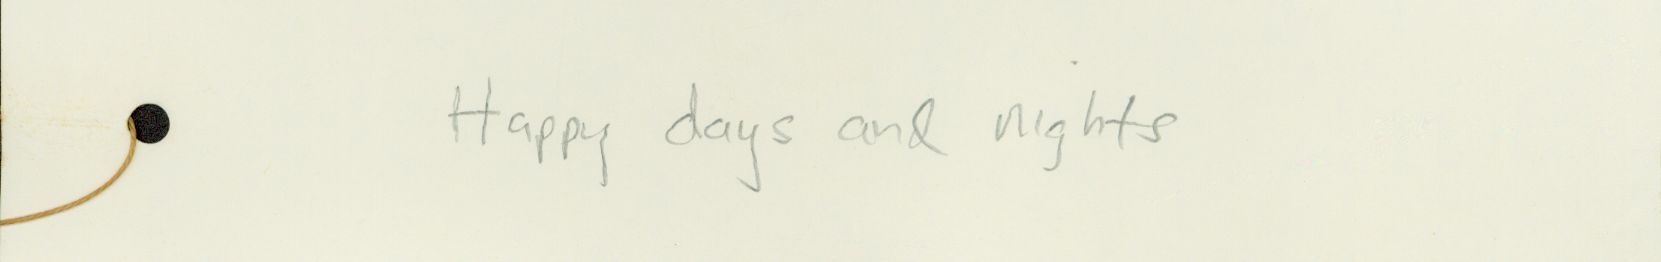 Happy days and nights